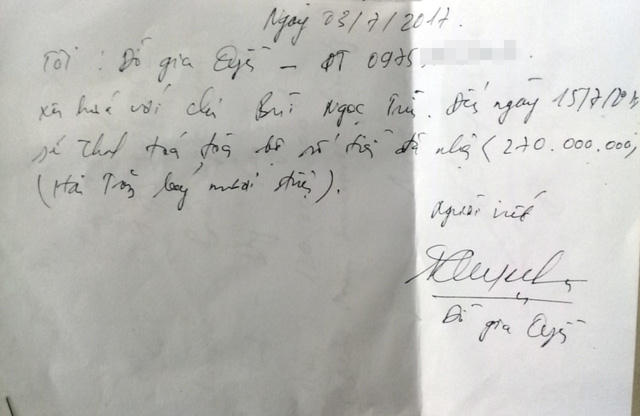 Ngày 03/7/2017.
Tôi : Đỗ gia Quyết – ĐT 0975.
xin hứa với chú Bùi Ngọc. Đến ngày 15/7/2017
sẽ thanh toán toàn bộ số tiền đã nhận (270.000.000,
(Hai Trăm bảy mươi triệu).
Người viết
Đỗ gia Quyết